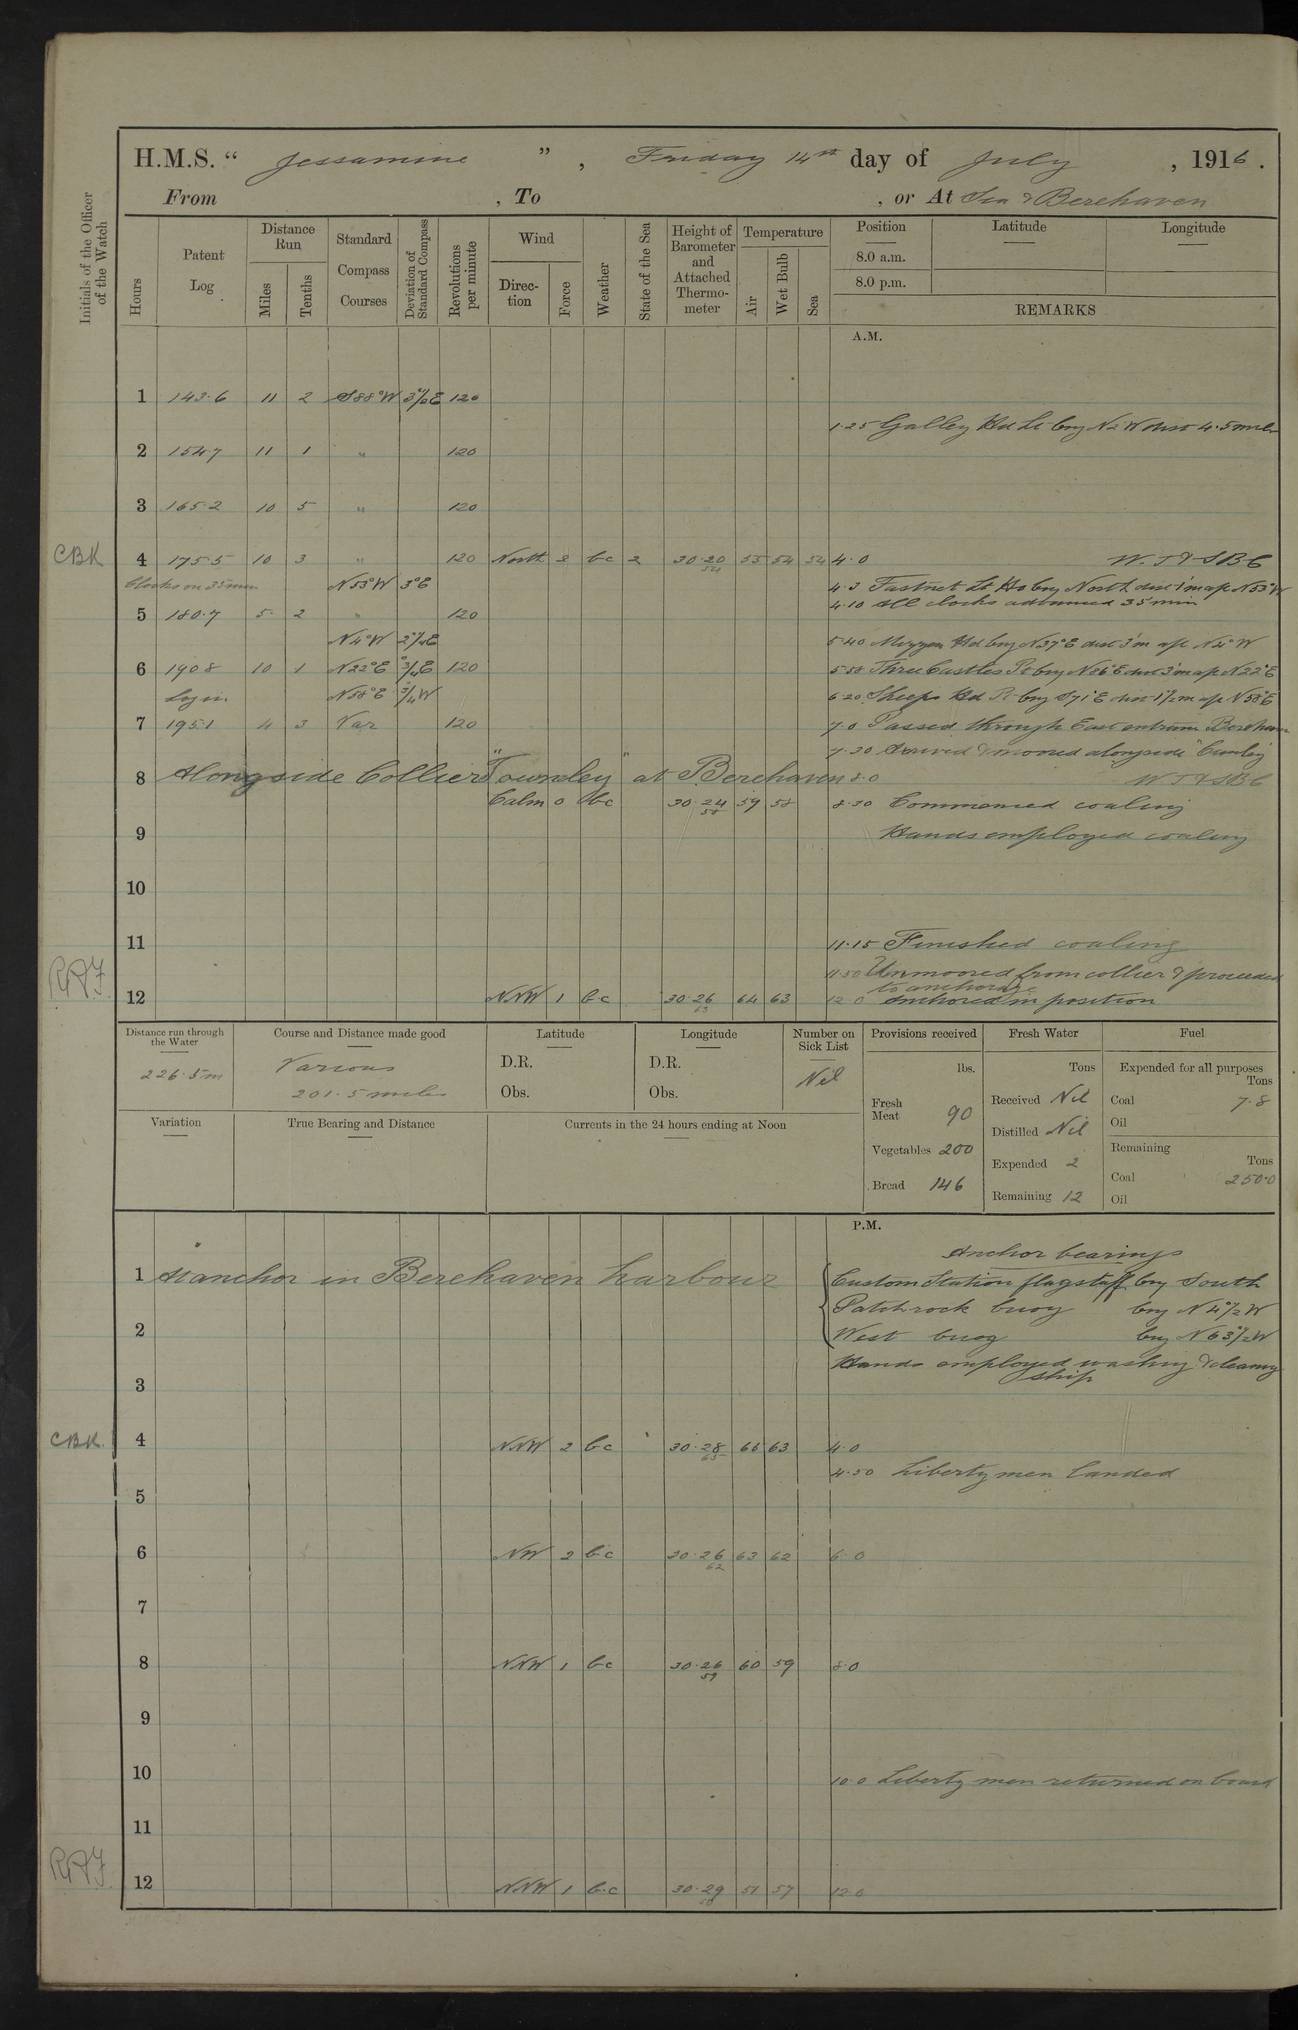 H.M.S. " Jessamine " , Friday 14th day of July , 1916 .
From , To , or At Sea & Berehaven
Initials of the Officer of the Watch
Hours
Patent Log
Distance Run
Miles
Tenths
Standard Compass Courses
Deviation of Standard Compass
Revolutions per minute
Wind
Direction
Force
Weather
State of the Sea
Height of Barometer and Attached Thermometer
Temperature
Air
Wet Bulb
Sea
Position
8.0 a.m.
8.0 p.m.
Latitude
Longitude
REMARKS
A.M.
1 143.6 11 2 S88°W 3°1/2E 120
1.25 Galley Hd Lt brg N2W dist 4.5 miles
2 154.7 11 1 " 120
3 165.2 10 5 " 120
CBK 4 175.5 10 3 " 120 North 2 bc 2 30.20 54 55 54 54 4.0
Clocks on 35 min N53°W 3°E
4.3 Fastnet Lt Ho brg North dist 1'm a/c N53°W
4.10 All clocks advanced 35 min
5 180.7 5 2 " 120
N4°W
5.40 Mizzen Hd brg N37°E dist 3'm a/c N4°W
6 190.8 10 1 N22°E 120
5.58 Three Castles Pt brg N86°E dist 3'm a/c N22°E
Log in N58°E
6.20 Sheeps Hd Pt brg S71°E dist 1 1/2 m a/c N58°E
7 195.1 4 3 Var 120 7.0 Passed through East entrance Berehaven
7.30 Arrived & moored alongside "Townley"
8 Alongside Collier "Townley" at Berehaven 8.0
Calm 0 bc 30.24 58 59 58 8.30 Commenced coaling
9 Hands employed coaling
10
11 11.15 Finished coaling
RAF 11.50 Unmoored from collier & proceeded
to anchorage
12 NNW 1 bc 30.26 63 64 63 12.0 Anchored in position
Distance run through the Water
226.5m
Course and Distance made good
Various
201.5 miles
Latitude
D.R.
Obs.
Longitude
D.R.
Obs.
Number on Sick List
Nil
Provisions received
lbs.
Fresh Meat 90
Vegetables 200
Bread 146
Fresh Water
Tons
Received Nil
Distilled Nil
Expended 2
Remaining 12
Fuel
Expended for all purposes
Tons
Coal 7.8
Oil
Remaining
Tons
Coal 250.0
Oil
Variation
True Bearing and Distance
Currents in the 24 hours ending at Noon
P.M.
Anchor bearings
1 At anchor in Berehaven harbour Custom Station flagstaff brg South
Patch rock buoy brg N4°1/2W
2 West buoy brg N63°1/2W
Hands employed washing & cleaning
ship
3
CBK. 4 NNW 2 bc 30.28 65 66 63 4.0
4.50 Liberty men landed
5
6 NW 2 bc 30.26 62 63 62 6.0
7
8 NNW 1 bc 30.26 59 60 59 8.0
9
10 10.0 Liberty men returned on board
11
RAF 12 NNW 1 bc 30.29 57 12.0